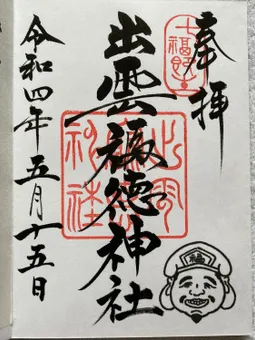 奉拝
七福即生
出雲福徳神社
出雲福徳神社
令和四年五月十五日
福